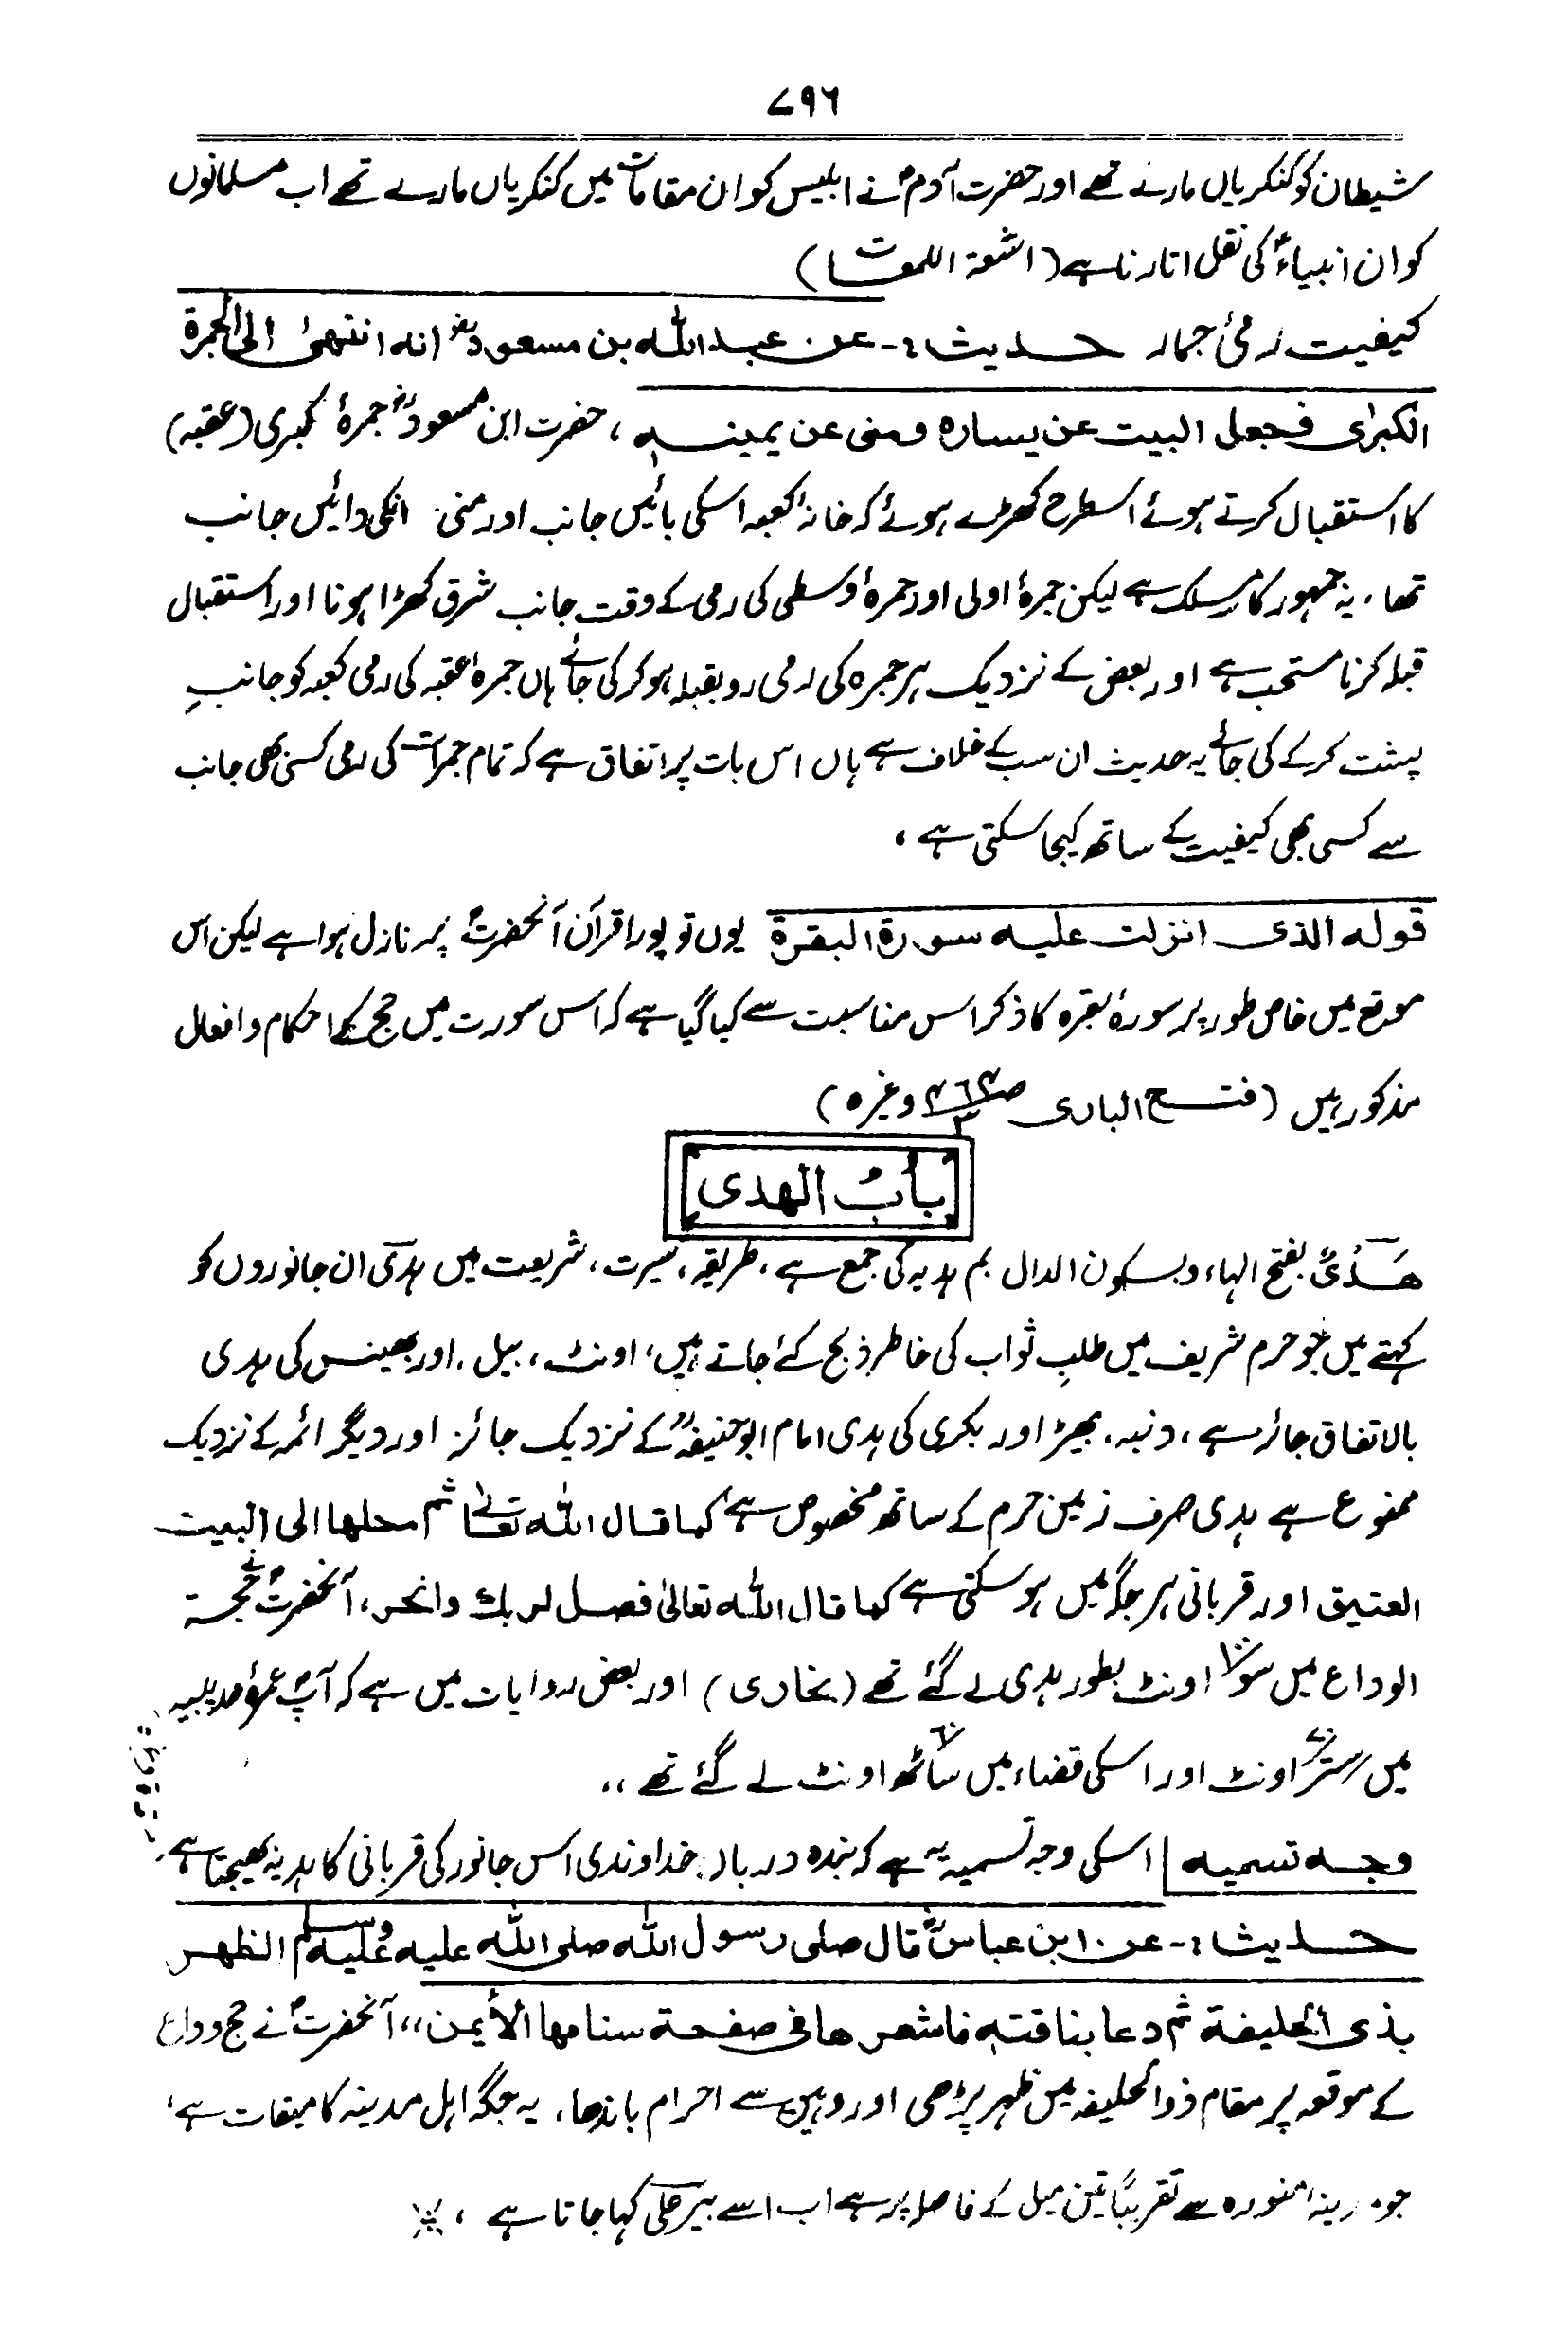 ۷۹۶
شیطان کو کنکریاں مارنے تھے اور حضرت آدمؑ نے ابلیس کو ان مقامات میں کنکریاں مارے تھے اب مسلمانوں
کو ان انبیاءؑ کی نقل اتارنا ہے (اشعۃ اللمعات)
کیفیت رمیٔ جمار حدیث :- عن عبد اللہ بن مسعودؓ انہ انتھیٰ الی الجمرة
الکبرٰی فجعل البیت عن یسارہ ومنی عن یمینہ ، حضرت ابن مسعودؓ جمرۂ کبری (عقبہ)
کا استقبال کرتے ہوئے اسطرح کھڑے ہوئے کہ خانۂ کعبہ اسکی بائیں جانب اور منی انکی دائیں جانب
تھا ، یہ جمہور کا مسلک ہے لیکن جمرۂ اولی اور جمرۂ وسطی کی رمی کے وقت جانب شرق کھڑا ہونا اور استقبال
قبلہ کرنا مستحب ہے اور بعض کے نزدیک ہر جمرہ کی رمی رو بقبلہ ہو کر کی جائے ہاں جمرۂ عقبہ کی رمی کعبہ کو جانبِ
پشت کر کے کی جائے یہ حدیث ان سب کے خلاف ہے ہاں اس بات پر اتفاق ہے کہ تمام جمرات کی رمی کسی بھی جانب
سے کسی بھی کیفیت کے ساتھ کیجا سکتی ہے ،
قولہ الذی انزلت علیہ سورة البقرة یوں تو پورا قرآن آنحضرتؐ پر نازل ہوا ہے لیکن اس
موقع میں خاص طور پر سورۂ بقرہ کا ذکر اس مناسبت سے کیا گیا ہے کہ اس سورت میں حج کے احکام و افعال
مذکور ہیں (فتح الباری ص۴۶۴/۳ وغیرہ)
بابُ الھدی
ھَدْیٌ بفتح الہاء و بسکون الدال بم ہدیہ کی جمع ہے ، طریقہ ، سیرت ، شریعت میں ہدی ان جانوروں کو
کہتے ہیں جو حرم شریف میں طلبِ ثواب کی خاطر ذبح کئے جاتے ہیں ، اونٹ ، بیل ، اور بھینس کی ہدی
بالاتفاق جائز ہے ، دنبہ ، بھیڑ اور بکری کی ہدی امام ابو حنیفہؒ کے نزدیک جائز اور دیگر ائمہ کے نزدیک
ممنوع ہے ہدی صرف زمین حرم کے ساتھ مخصوص ہے کما قال اللہ تعالےٰ ثم محلھا الی البیت
العتیق اور قربانی ہر جگہ میں ہو سکتی ہے کما قال اللہ تعالیٰ فصل لربك وانحر ، آنحضرتؐ نے حجۃ
الوداع میں سو ۱۰۰ اونٹ بطور ہدی لے گئے تھے (بخاری) اور بعض روایات میں ہے کہ آپؐ عمرۂ حدیبیہ
میں ستر ۷۰ اونٹ اور اسکی قضاء میں ساٹھ ۶۰ اونٹ لے گئے تھے ،،
وجہ تسمیہ اسکی وجہ تسمیہ یہ ہے کہ بندہ دربار خداوندی اس جانور کی قربانی کا ہدیہ بھیجتا ہے
حدیث :- عن ابن عباسؓ قال صلی رسول اللہ صلی اللہ علیہ وسلم الظھر
بذی الحلیفة ثم دعا بناقتہ فاشعرھا فی صفحة سنامھا الأیمن ،، آنحضرتؐ نے حج وداع
کے موقعہ پر مقام ذوالحلیفہ میں ظہر پڑھی اور وہیں سے احرام باندھا ، یہ جگہ اہل مدینہ کا میقات ہے ،
جو مدینہ منورہ سے تقریباً تین میل کے فاصلہ پر ہے اب اسے بیر علی کہا جاتا ہے ،